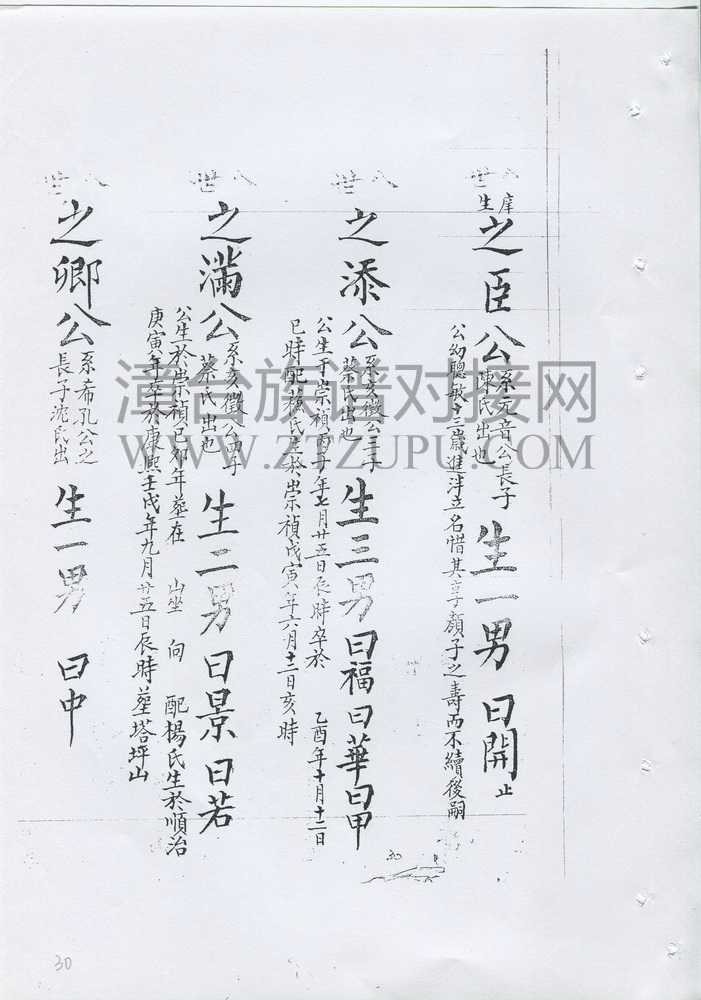 八世
庠生
之臣公
系元音公長子
陳氏出也
生一男 曰開 止
公幼聰敏十三歲進泮立名惜其享顏子之壽而不續後嗣
八世
之添公
系亥徵公三子
蔡氏出也
生三男曰福曰華曰甲
公生于崇禎丙子年七月廿五日辰時卒於 乙酉年十月十二日
巳時配蘇氏生於崇禎戊寅年六月十二日亥時
八世
之滿公
系亥徵公四子
蔡氏出也
生二男曰景曰若
公生於崇禎己卯年葬在 山坐 向 配楊氏生於順治
庚寅年卒於康熙壬戌年九月廿五日辰時葬塔坪山
八世
之卿公
系希孔公之
長子沈氏出
生一男 曰中
漳台族譜对接网
WWW.ZTZUPU.COM
30